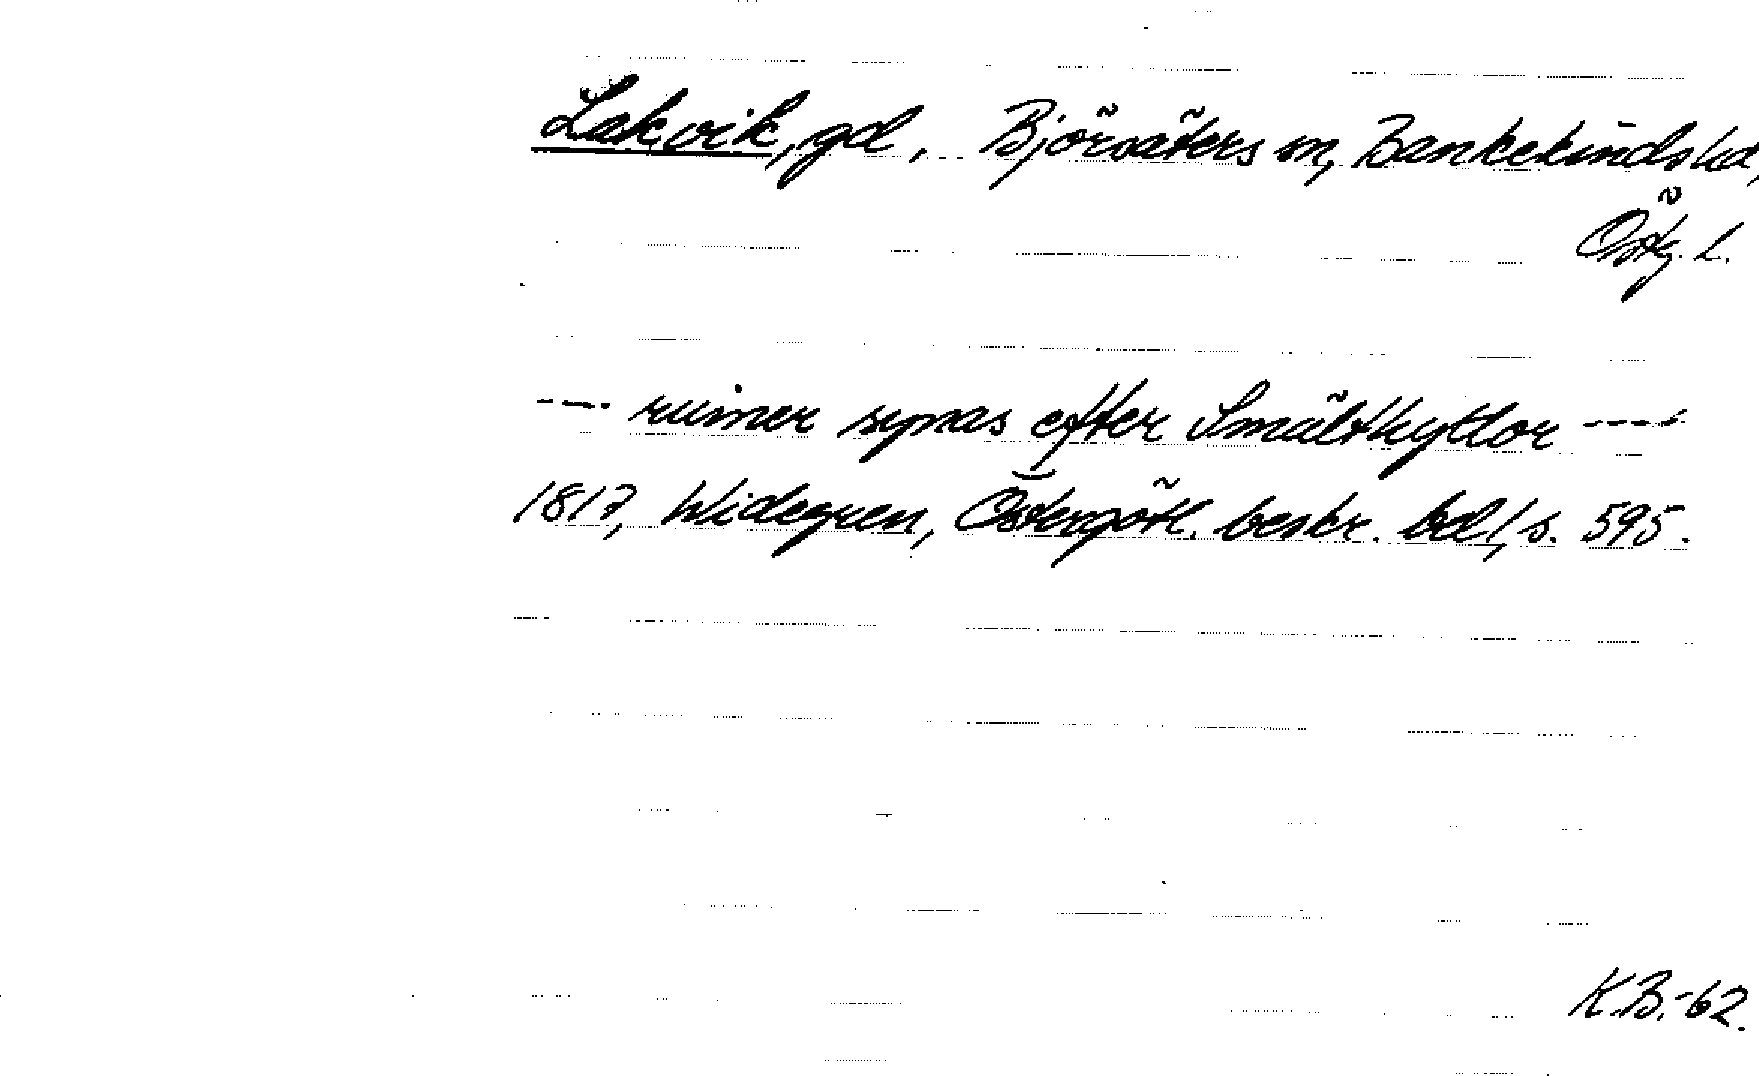 Lakvik, gd, Björsäters sn, Bankekinds hd,
Östg. L.
--- ruiner synas efter Smälthyttor ---
1817, Widegren, Östergötl. beskr. bd 1, s. 595.
K.B.-62.